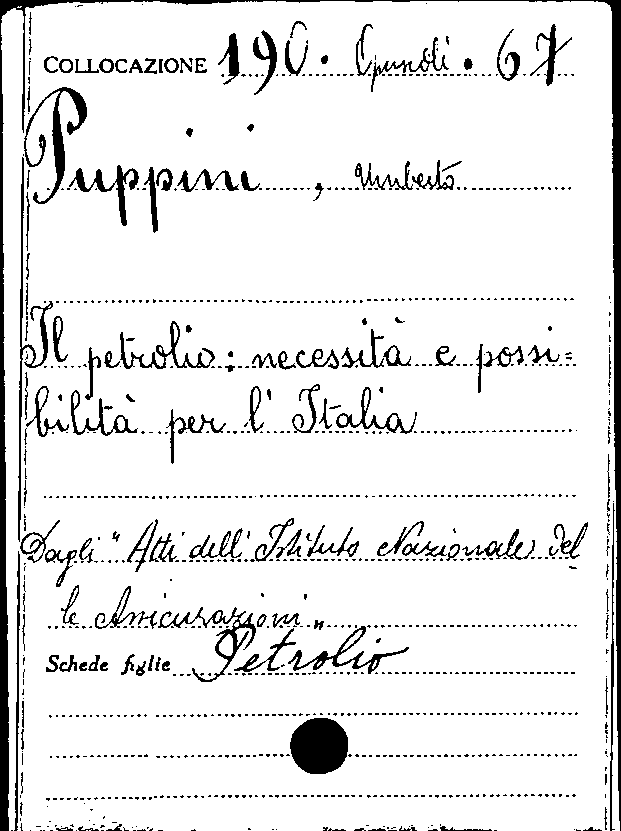 COLLOCAZIONE 190. Opuscoli. 67
Puppini, Umberto
Il petrolio: necessità e possi=
bilità per l'Italia
Dagli "Atti dell'Istituto Nazionale del
le Assicurazioni"
Schede figlie Petrolio